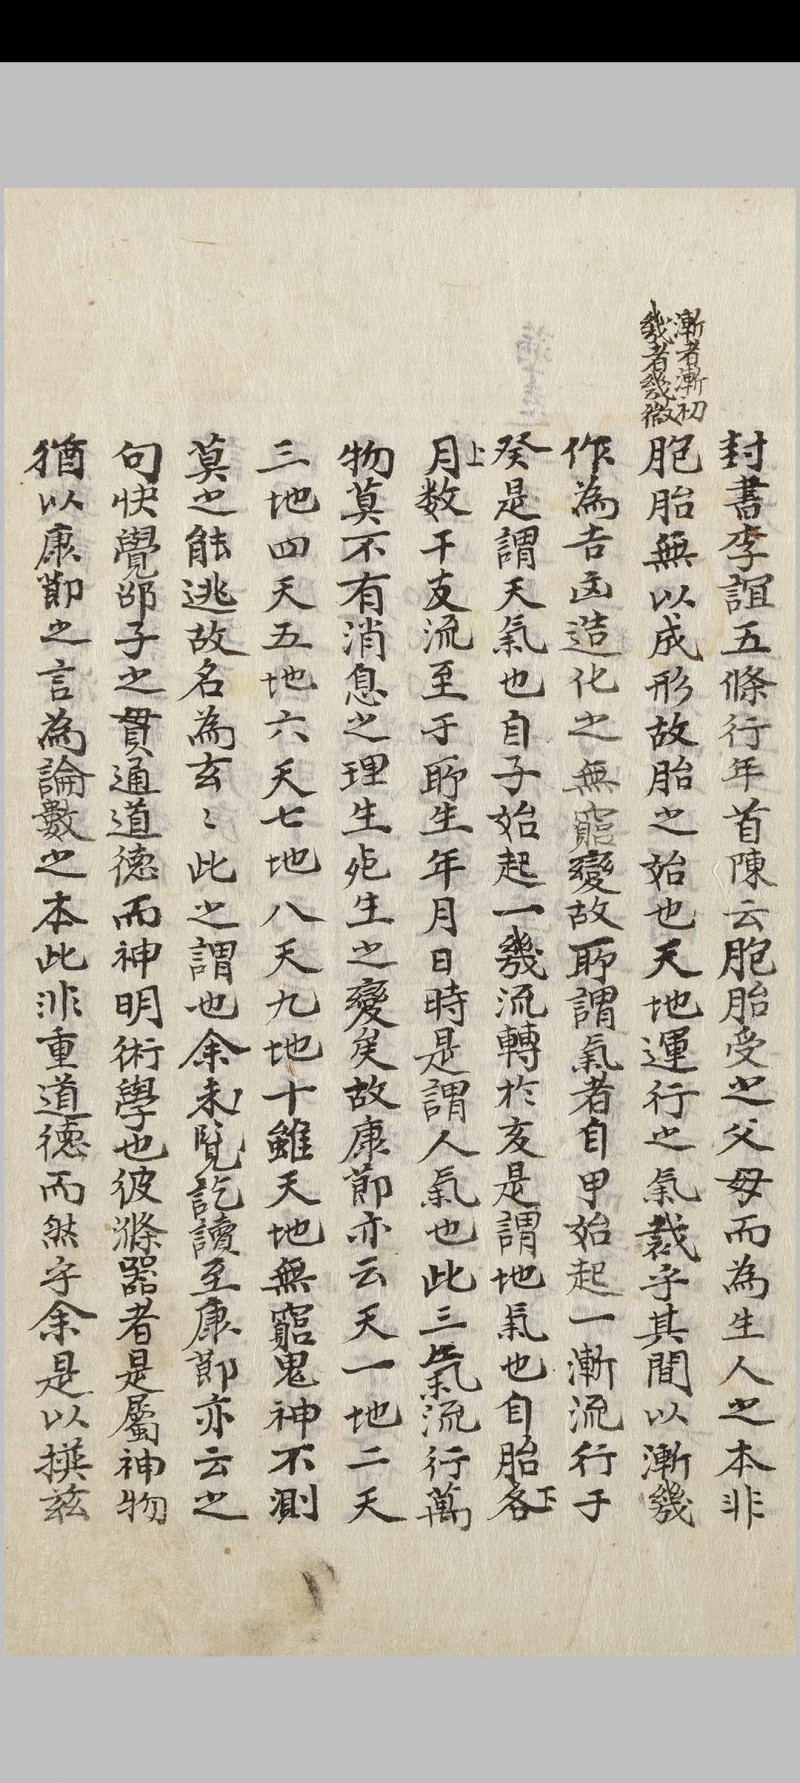 漸者漸初
幾者幾微
封書李誼五條行年首陳云胞胎受之父母而為生人之本非
胞胎無以成形故胎之始也天地運行之氣裁乎其間以漸幾
作為吉凶造化之無窮變故所謂氣者自甲始起一漸流行于
癸是謂天氣也自子始起一幾流轉於亥是謂地氣也自胎各下
月上数干支流至于所生年月日時是謂人氣也此三氣流行萬
物莫不有消息之理生死生之變矣故康節亦云天一地二天
三地四天五地六天七地八天九地十雖天地無窮鬼神不測
莫之能逃故名為玄〻此之謂也余未覽訖讀至康節亦云之
句快覺邵子之貫通道德而神明術學也彼滌器者是屬神物
猶以康節之言為論數之本此非重道德而然乎余是以撰玆